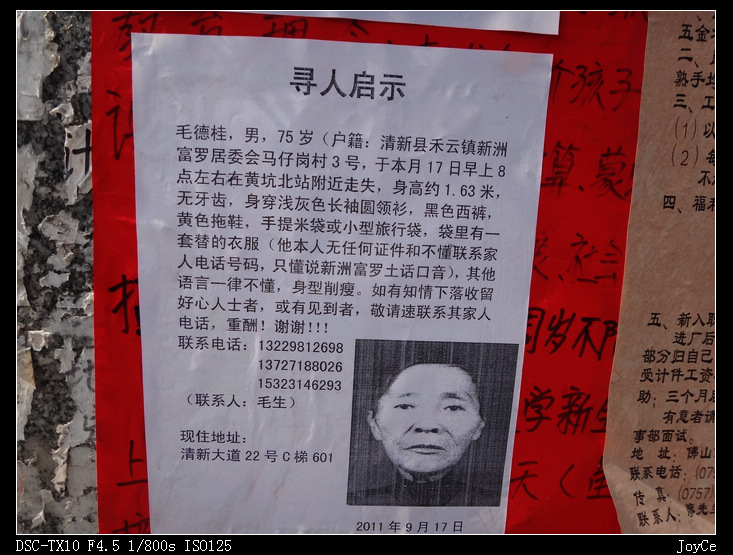 寻人启示
毛德桂，男，75 岁（户籍：清新县禾云镇新洲
富罗居委会马仔岗村 3 号，于本月 17 日早上 8
点左右在黄坑北站附近走失，身高约 1.63 米，
无牙齿，身穿浅灰色长袖圆领衫，黑色西裤，
黄色拖鞋，手提米袋或小型旅行袋，袋里有一
套替的衣服（他本人无任何证件和不懂联系家
人电话号码，只懂说新洲富罗土话口音），其他
语言一律不懂，身型削瘦。如有知情下落收留
好心人士者，或有见到者，敬请速联系其家人
电话，重酬！谢谢!!!
联系电话：13229812698
13727188026
15323146293
（联系人：毛生）
现住地址：
清新大道 22 号 C 梯 601
2011 年 9 月 17 日
个孩子
算、蒙
社会
周岁不
学新生
天（
五金
二、
熟手均
三、工
（1）以
（2）每
不
四、福利
五、新入职
进厂后
部分归自己
受计件工资
助；三个月后
有意者请
事部面试。
地 址：佛山
联系电话：(075
传 真：(0757)
联系人：廖先生
DSC-TX10 F4.5 1/800s ISO125
JoyCe